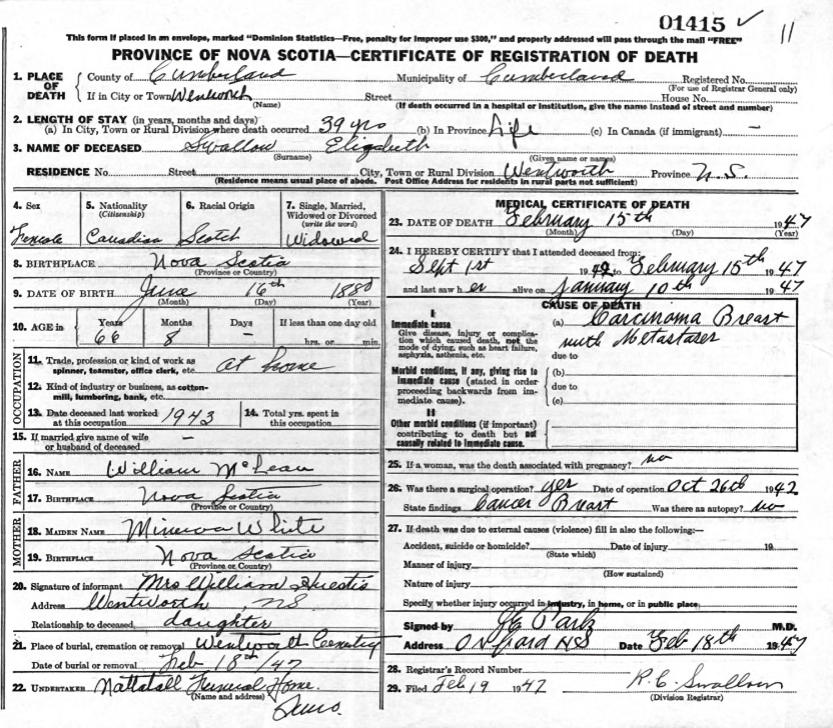 01415 ✓ 11
This form if placed in an envelope, marked "Dominion Statistics—Free, penalty for improper use $300," and properly addressed will pass through the mail "FREE"
PROVINCE OF NOVA SCOTIA—CERTIFICATE OF REGISTRATION OF DEATH
1. PLACE OF DEATH { County of Cumberland Municipality of Cumberland Registered No.
(For use of Registrar General only)
If in City or Town Wentworth Street House No.
(Name) (If death occurred in a hospital or institution, give the name instead of street and number)
2. LENGTH OF STAY (in years, months and days)
(a) In City, Town or Rural Division where death occurred 39 yrs (b) In Province Life (c) In Canada (if immigrant) —
3. NAME OF DECEASED Swallow Elizabeth
(Surname) (Given name or names)
RESIDENCE No. Street City, Town or Rural Division Wentworth Province N.S.
(Residence means usual place of abode. Post Office Address for residents in rural parts not sufficient)
4. Sex Female
5. Nationality (Citizenship) Canadian
6. Racial Origin Scotch
7. Single, Married, Widowed or Divorced (write the word) Widowed
8. BIRTHPLACE Nova Scotia
(Province or Country)
9. DATE OF BIRTH June 16th 1880
(Month) (Day) (Year)
10. AGE in Years Months Days If less than one day old
66 8 — hrs. or min.
OCCUPATION
11. Trade, profession or kind of work as spinner, teamster, office clerk, etc. at home
12. Kind of industry or business, as cotton-mill, lumbering, bank, etc.
13. Date deceased last worked at this occupation 1943
14. Total yrs. spent in this occupation
15. If married give name of wife or husband of deceased —
FATHER
16. NAME William McLean
17. BIRTHPLACE Nova Scotia
(Province or Country)
MOTHER
18. MAIDEN NAME Minerva White
19. BIRTHPLACE Nova Scotia
(Province or Country)
20. Signature of informant Mrs William Huestis
Address Wentworth, NS
Relationship to deceased daughter
21. Place of burial, cremation or removal Wentworth Cemetry
Date of burial or removal Feb 18th/47
22. UNDERTAKER Nattatall Funeral Home.
(Name and address)
MEDICAL CERTIFICATE OF DEATH
23. DATE OF DEATH February 15th 1947
(Month) (Day) (Year)
24. I HEREBY CERTIFY that I attended deceased from:
Sept 1st 19 to February 15th 1947
and last saw her alive on January 10th 1947
CAUSE OF DEATH
I
Immediate cause
Give disease, injury or complication which caused death, not the mode of dying, such as heart failure, asphyxia, asthenia, etc.
(a) Carcinoma Breast
with Metastases
due to
Morbid conditions, if any, giving rise to immediate cause (stated in order proceeding backwards from immediate cause).
(b)
due to
(c)
II
Other morbid conditions (if important) contributing to death but not causally related to immediate cause.
25. If a woman, was the death associated with pregnancy? no
26. Was there a surgical operation? yes Date of operation Oct 26th 1942
State findings Cancer Breast Was there an autopsy? no
27. If death was due to external causes (violence) fill in also the following:—
Accident, suicide or homicide? Date of injury 19
(State which)
Manner of injury
(How sustained)
Nature of injury
Specify whether injury occurred in industry, in home, or in public place;
Signed by Park M.D.
Address Oxford NS Date Feb 18th 1947
28. Registrar's Record Number
29. Filed Feb 19 1947 R. C. Swallow
(Division Registrar)